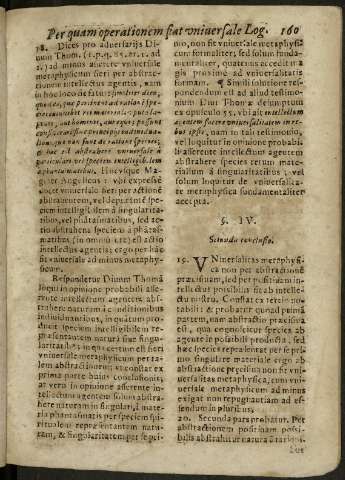 Per quam operationem fiat vniuersale Log. 160
18. Dices pro aduersarijs Di-
uum Thom. 1. p. q. 85. ar. 1. ad
ad minus asserere vniuersale
metaphysicum fieri per abstra-
ctionem intellectus agentis, nam
in hoc loco sic fatur
consideret
speciei
Hucvsque Ma-
gister Angelicus: vbi expressè
docet vniuersale fieri per actionē
abstrahentem, vel depurantē spe-
ciem intelligibilem à singularita-
tibus, vel phatasmatibus, sed a-
ctio abstrahens speciem à phātas-
matibus (in omniū ore) est actio
intellectus agentis; ergo per hāc
fit vniuersale ad minus metaphy-
sicum.
Respondetur Diuum Thomā
loqui in opinione probabili asse-
rente intellectum agentem abs-
trahere naturam à conditionibus
indiuiduantibus, in quantum pro-
ducit speciem intelligibilem re-
præsentantem naturā sine singu-
laritatibus; in qua certum est fieri
vniuersale metaphysicum per ta-
lem abstractionem; vt constat ex
prima parte huius conclusionis;
at vero in opinione asserente in-
tellectum agentem solum abstra-
here naturam in singulari, à mate-
ria phantasmatis per speciem spi-
ritualem repræsentantem natu-
ram, & singularitatem per se pri-
mo, non fit vniuersale metaphysi-
cum formaliter; sed solum funda-
mentaliter, quatenus accedit ma-
gis proxime ad vniuersalitatis
formam. ¶ Simili solutione res-
pondendum est ad aliud testimo-
nium Diui Thomæ desumptum
ex opusculo 55, vbi ait intellectum
agentem facere vniuersalitatem in re-
bus ipsis, nam in tali testimonio,
vel loquitur in opinione probabi-
li asserente intellectum agentem
abstrahere species rerum mate-
rialium à singularitatibus; vel
solum loquitur de vniuersalita-
te metaphysica fundamentaliter
accepta.
§. IV.
Secunda conclusio.
19. VNiuersalitas metaphysi-
ca non per abstractionē
præcisiuam, sed per positiuam in-
tellectus possibilis fit ab intelle-
ctu nostro. Constat ex tertio no-
tabili; & probatur quoad primā
partem, nam abstractio præcisiua
est, qua cognoscitur species ab
agente in possibili producta, sed
hæc species repræsentat per se pri-
mo singulare materiale ergo ab
abstractione præcisiua non fit vni-
uersalitas metaphysica, cum vni-
uersale metaphysicum ad minus
exigat non repugnantiam ad es-
sendum in pluribus.
20. Secunda pars probatur. Per
abstractionem positiuam possi-
bilis abstrahitur natura à rationi-